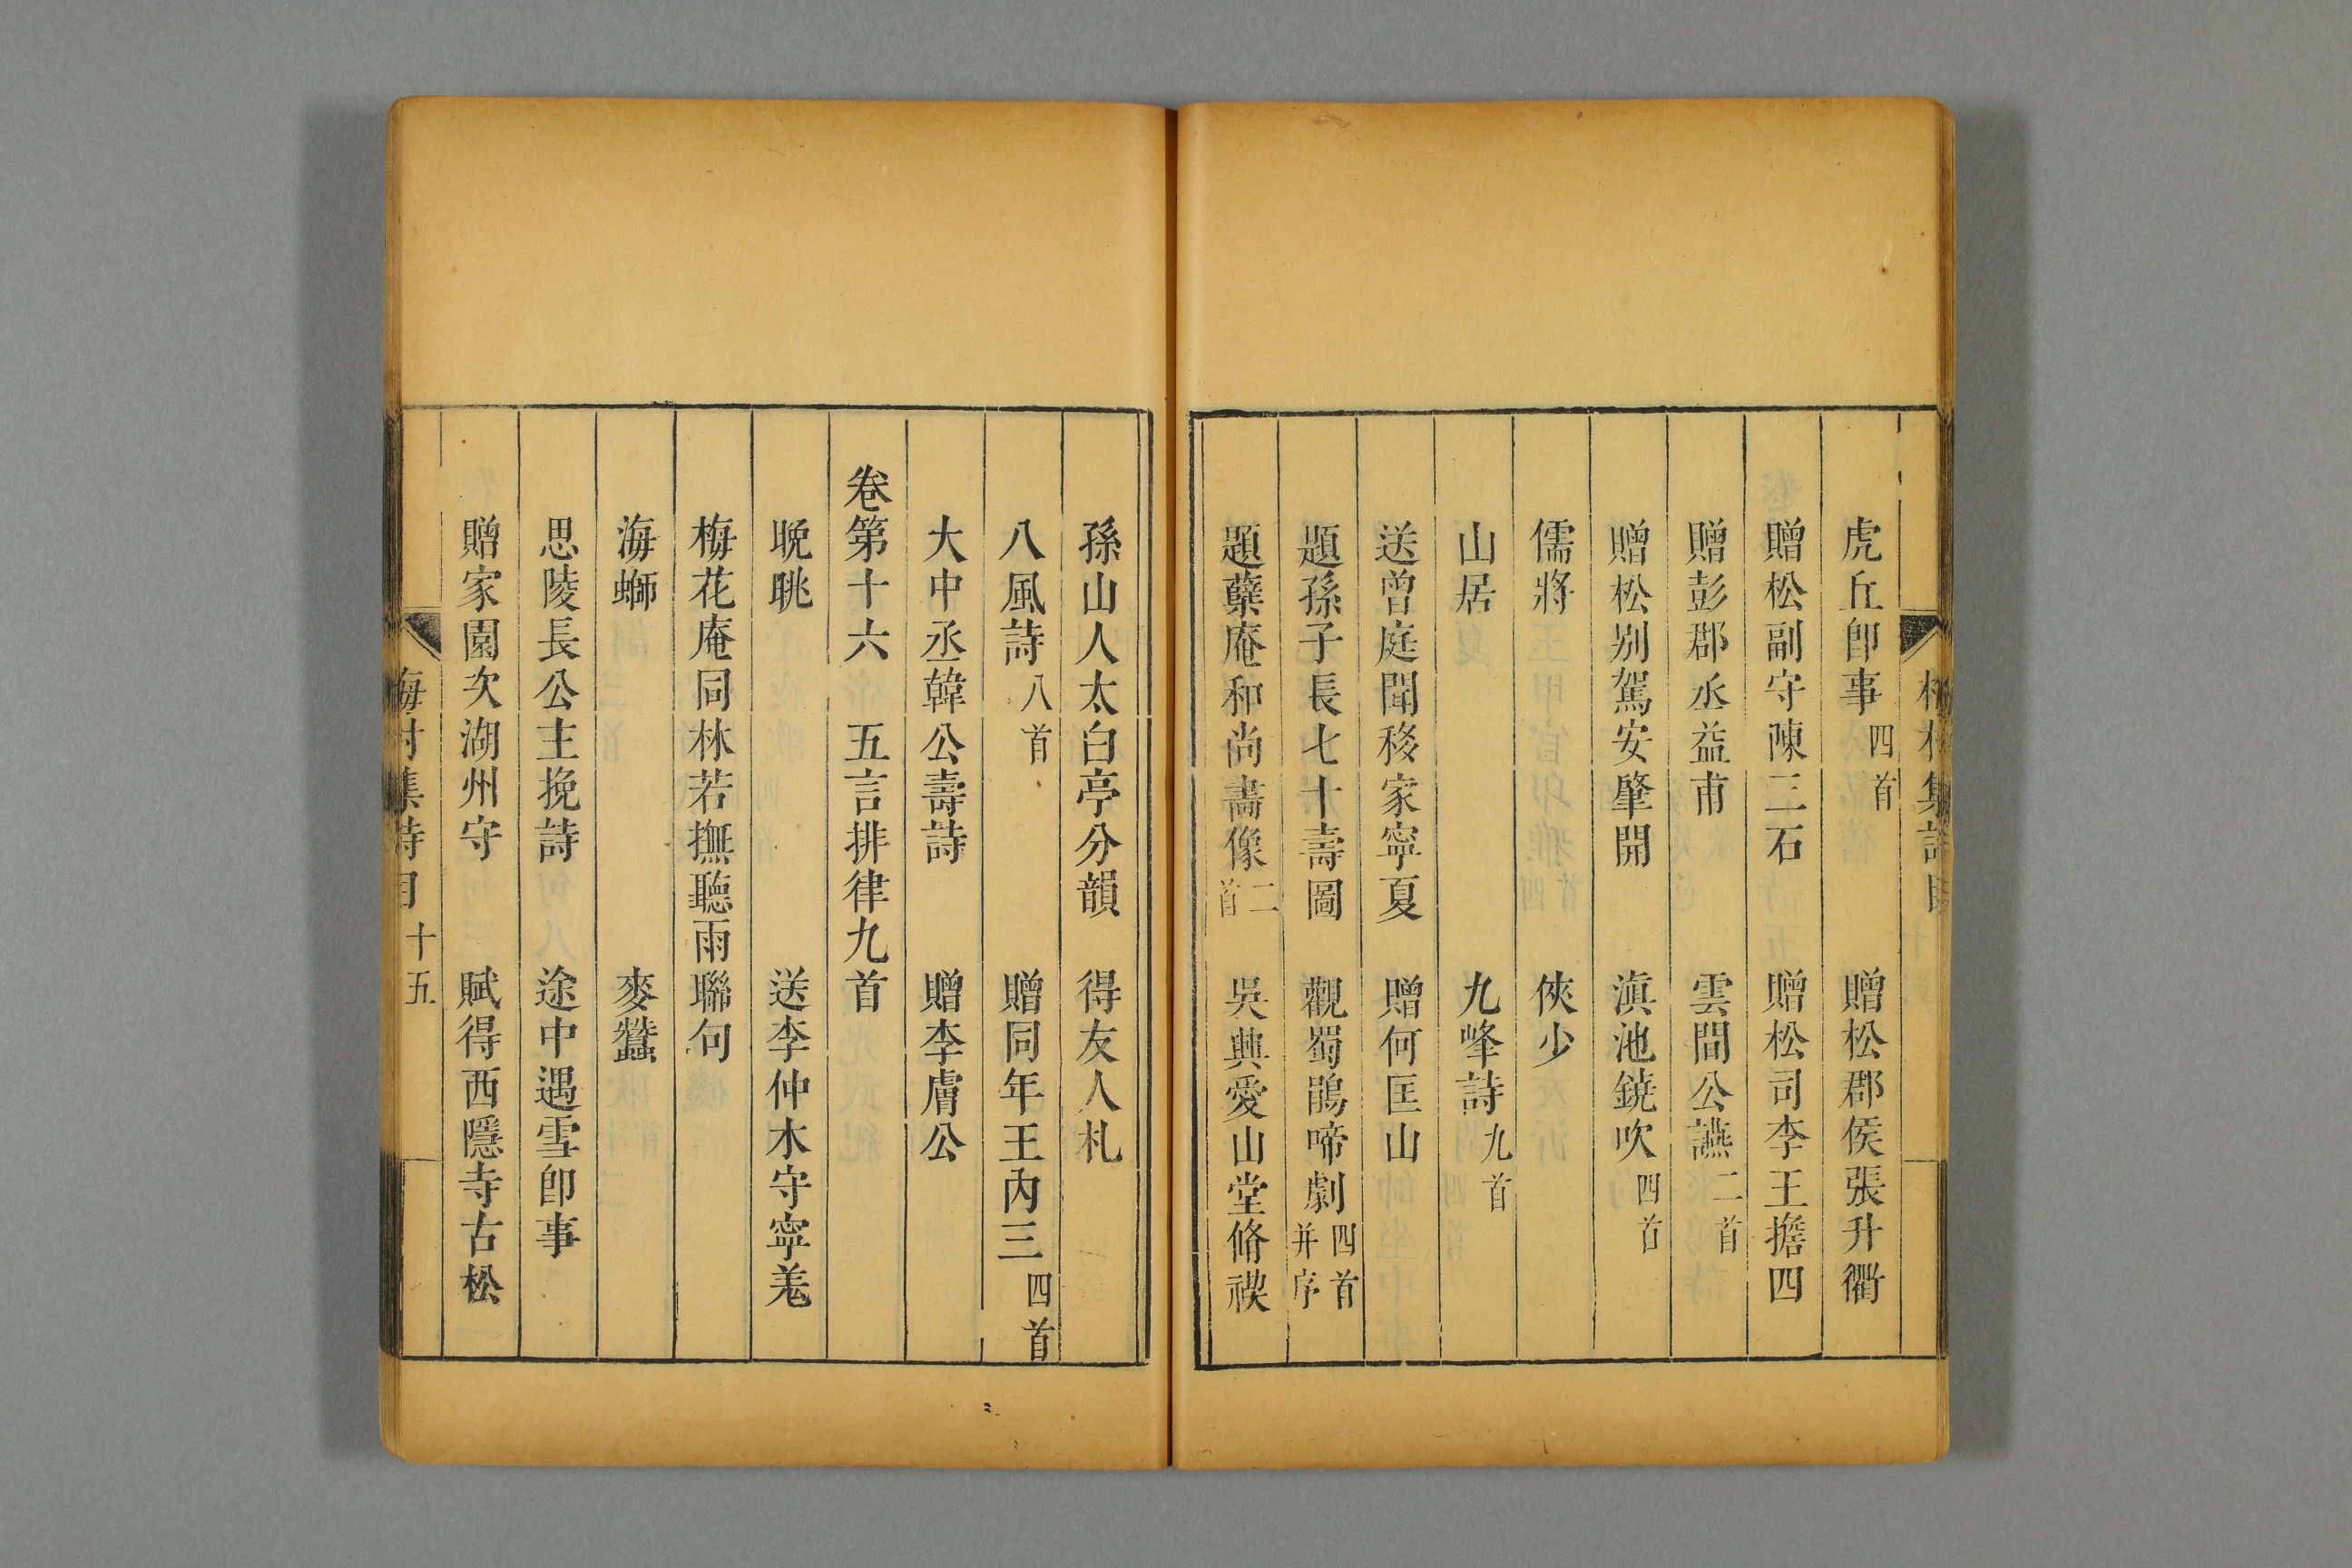 虎丘卽事 四首 贈松郡侯張升衢
贈松副守陳三石 贈松司李王擔四
贈彭郡丞益甫 雲間公讌 二首
贈松別駕安肇開 滇池鐃吹 四首
儒將 俠少
山居 九峰詩 九首
送曾庭聞移家寧夏 贈何匡山
題孫子長七十壽圖 觀蜀鵑啼劇 四首 并序
題蘖庵和尚畫像 二首 吳興愛山堂脩禊
孫山人太白亭分韻 得友人札
八風詩 八首 贈同年王內三 四首
大中丞韓公壽詩 贈李膚公
卷第十六 五言排律九首
晚眺 送李仲木守寧羌
梅花庵同林若撫聽雨聯句
海螄 麥蠶
思陵長公主挽詩 途中遇雪卽事
贈家園次湖州守 賦得西隱寺古松
梅村集詩目 十五